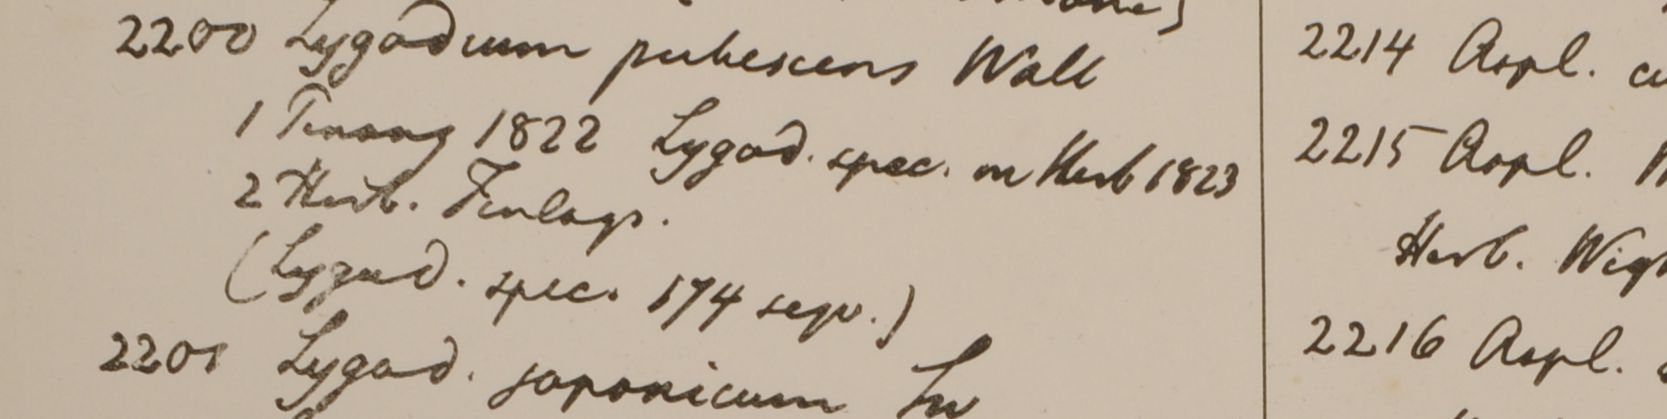 2200 Lygodium pubescens Wall
1 Penang 1822 Lygod. spec. in Herb 1823
2 Herb. Finlays.
(Lygod. spec. 174 seqv.)
2201 Lygod. japonicum Sw
2214 Aspl.
2215 Aspl.
Herb. Wigh
2216 Aspl.